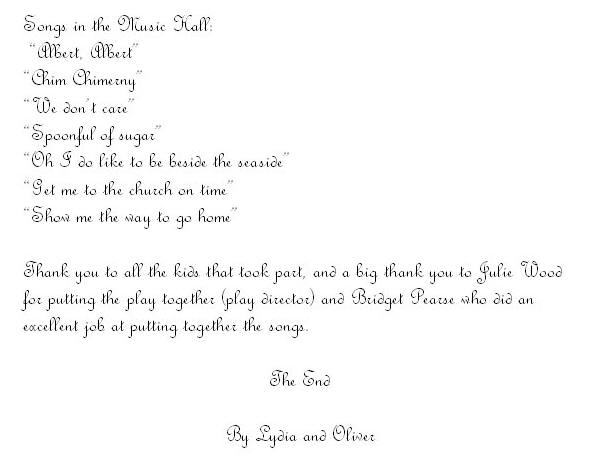 Songs in the Music Hall:
"Albert, Albert"
"Chim Chimerny"
"We don't care"
"Spoonful of sugar"
"Oh I do like to be beside the seaside"
"Get me to the church on time"
"Show me the way to go home"
Thank you to all the kids that took part, and a big thank you to Julie Wood
for putting the play together (play director) and Bridget Pearse who did an
excellent job at putting together the songs.
The End
By Lydia and Oliver